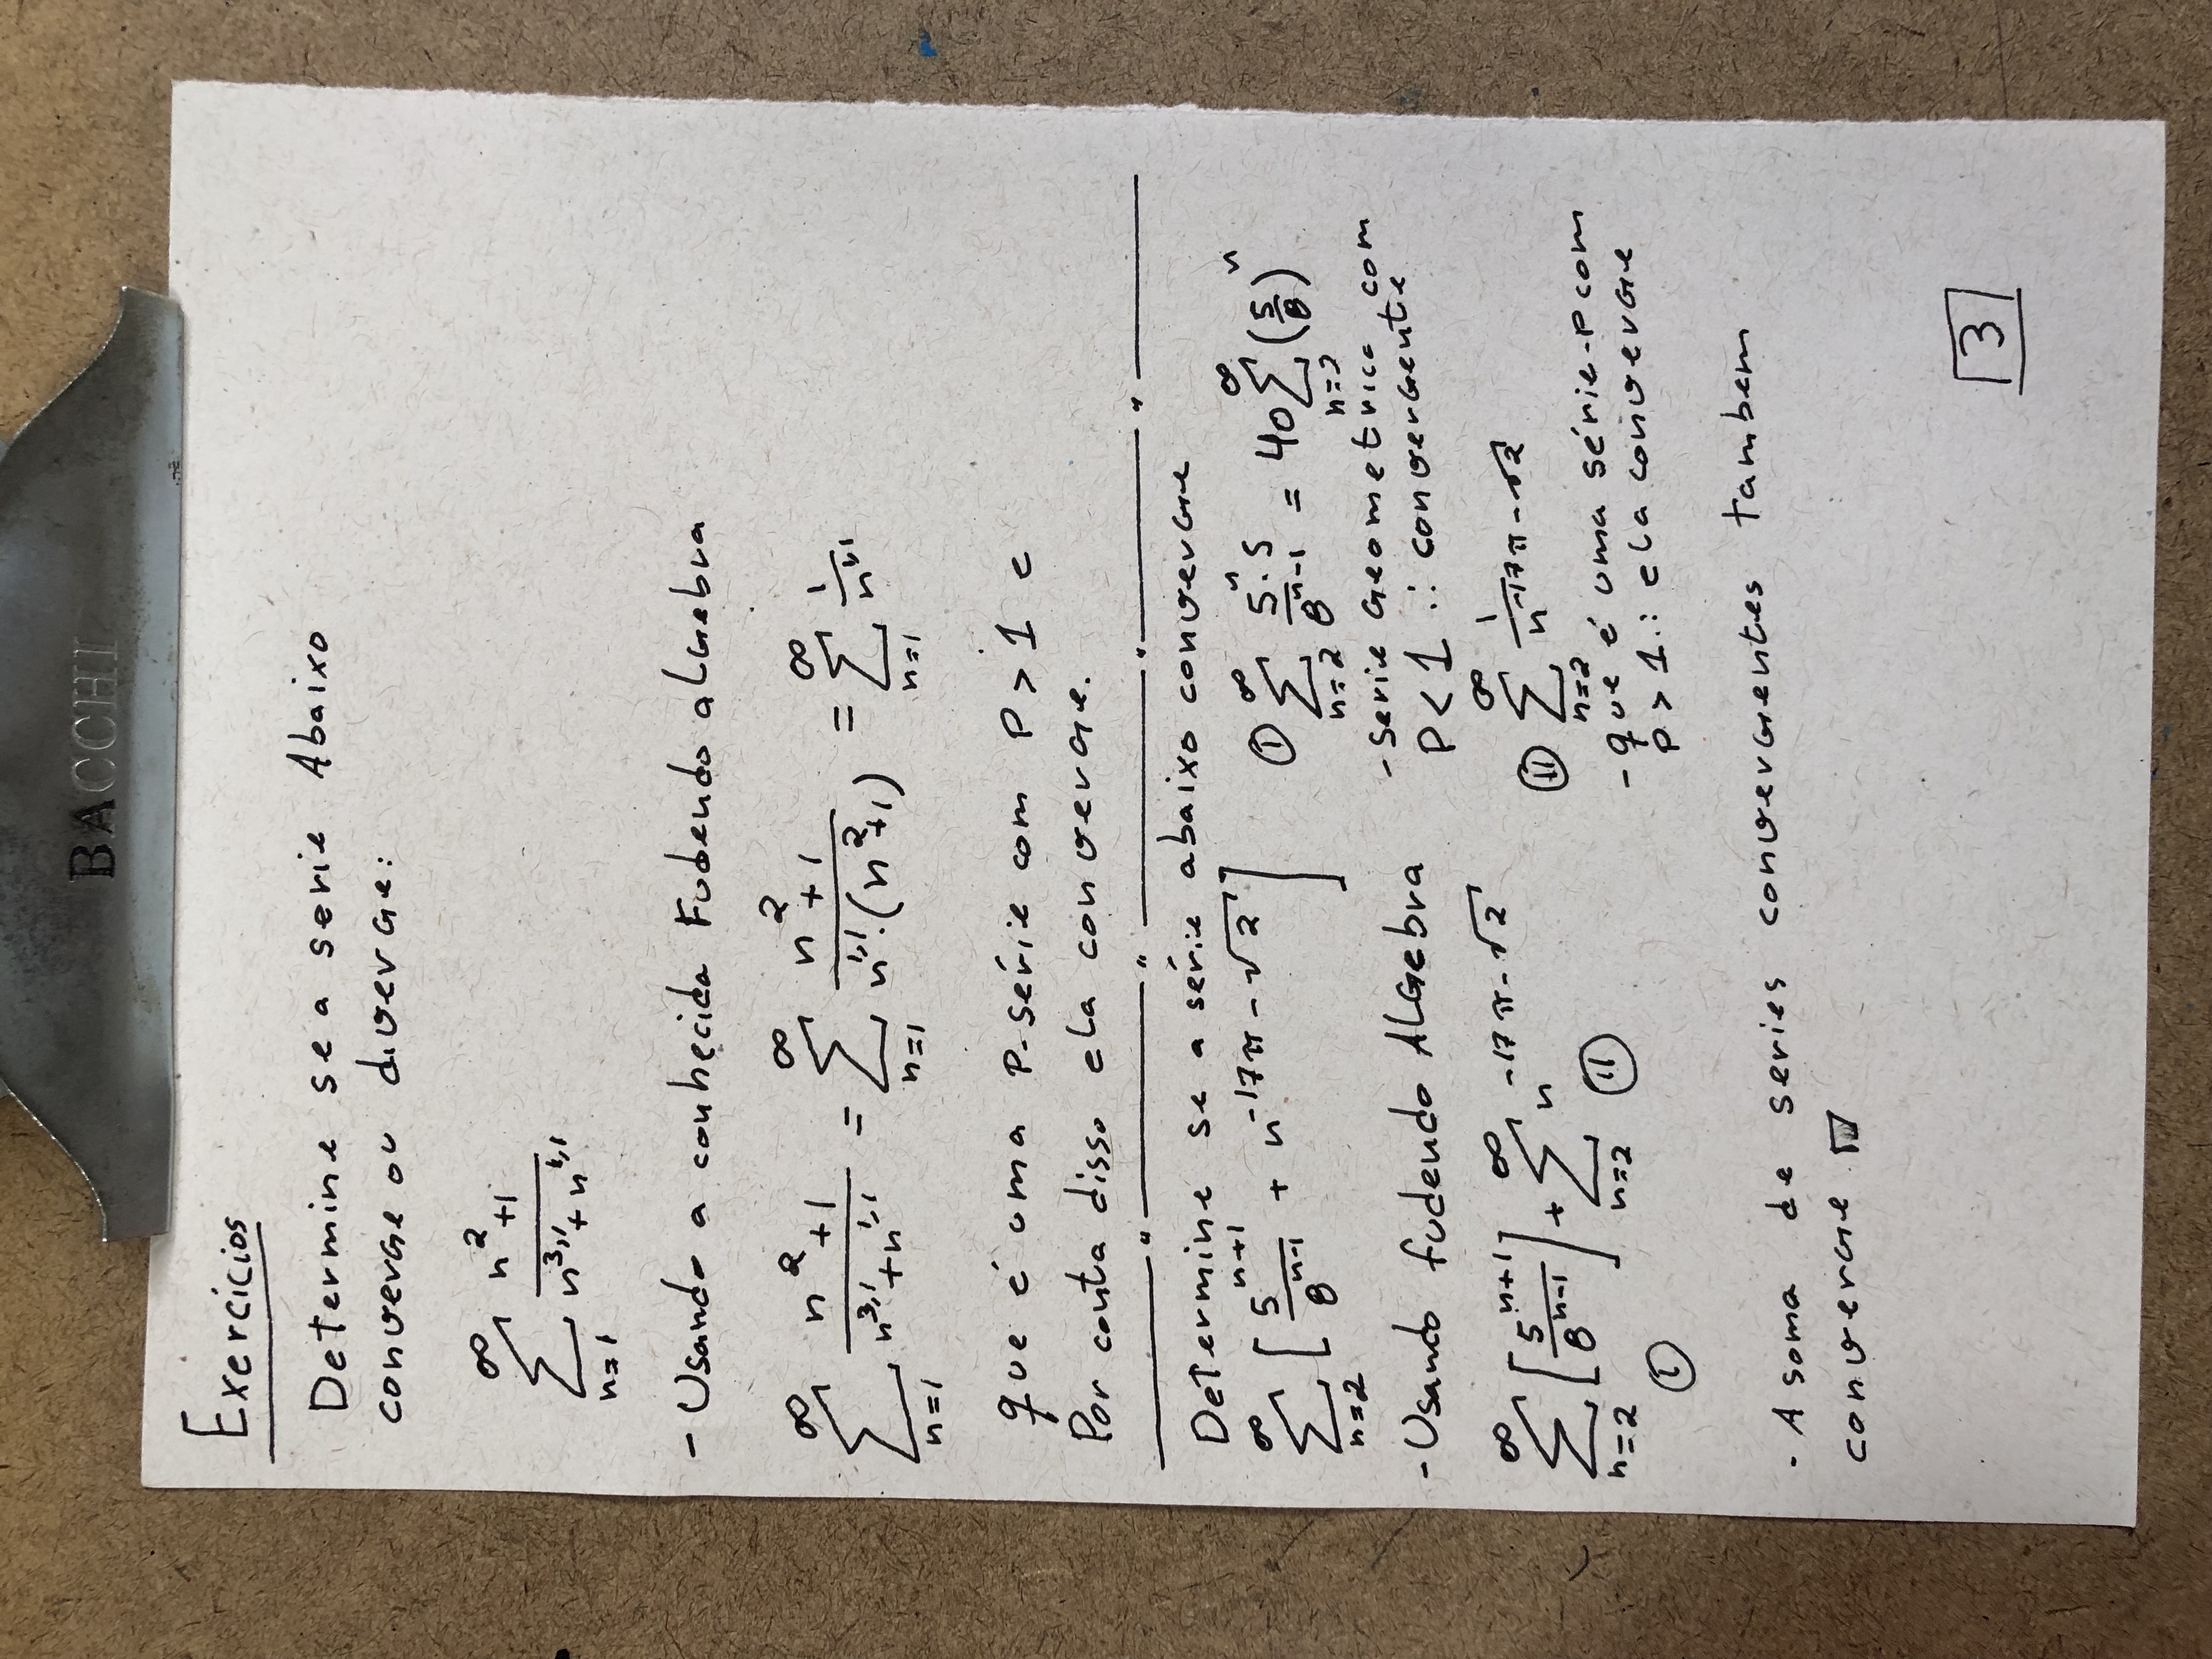 BACCHI
Exercícios
Determine se a serie Abaixo
converge ou diverge:
∞ Σ n=1 (n²+1)/(n^3,1 + n^1,1)
- Usando a conhecida Fudendo algebra
∞ Σ n=1 (n²+1)/(n^3,1 + n^1,1) = ∞ Σ n=1 (n²+1)/(n^1,1·(n²+1)) = ∞ Σ n=1 1/n^1,1
que é uma p-série com P > 1 e
Por conta disso ela converge.
Determine se a série abaixo converge
∞ Σ n=2 [5^(n+1)/8^(n-1) + n^(-17π-√2)]
- Usando fudendo Algebra
∞ Σ n=2 [5^(n+1)/8^(n-1)] + ∞ Σ n=2 n^(-17π-√2)
(I) (II)
(I) ∞ Σ n=2 5^n·5/8^(n-1) = 40 ∞ Σ n=2 (5/8)^n
- serie Geometrica com
P < 1 ∴ convergente
(II) ∞ Σ n=2 1/n^(-17π-√2)
- que é uma série-p com
p > 1 ∴ ela converge
- A soma de series convergentes tambem
converge
3